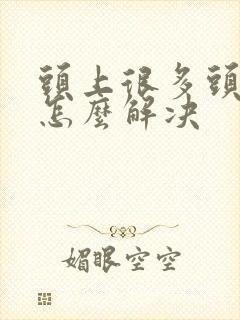 頭上很多頭
怎麼解決
媚眼空空